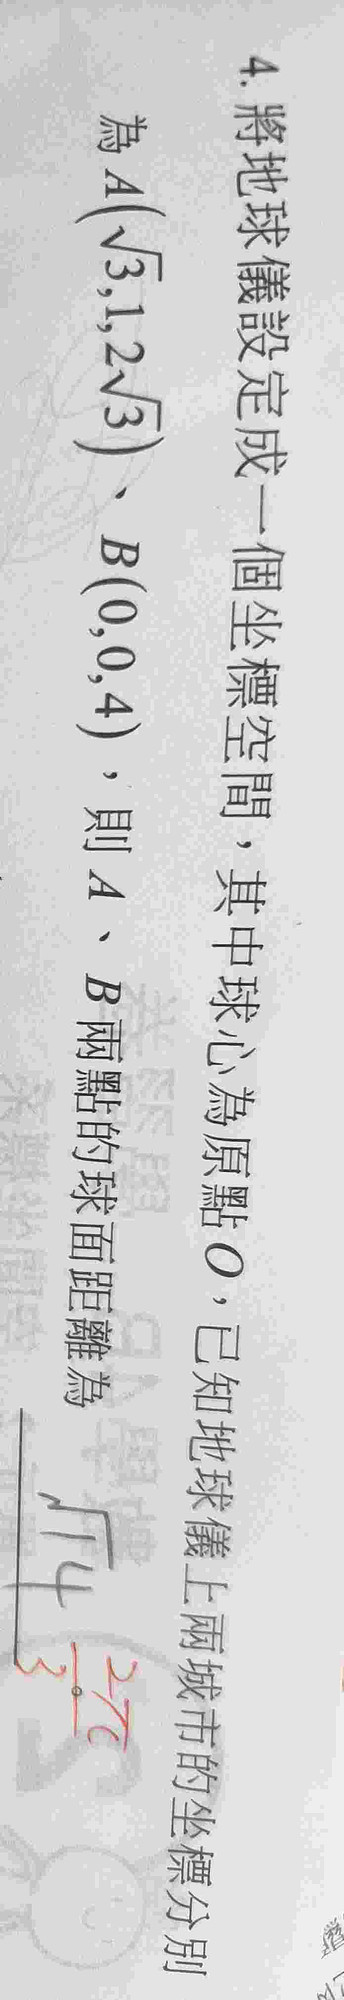 4. 將地球儀設定成一個坐標空間，其中球心為原點O，已知地球儀上兩城市的坐標分別
為 A(√3,1,2√3)、B(0,0,4)，則 A、B 兩點的球面距離為 √14 2π/3。